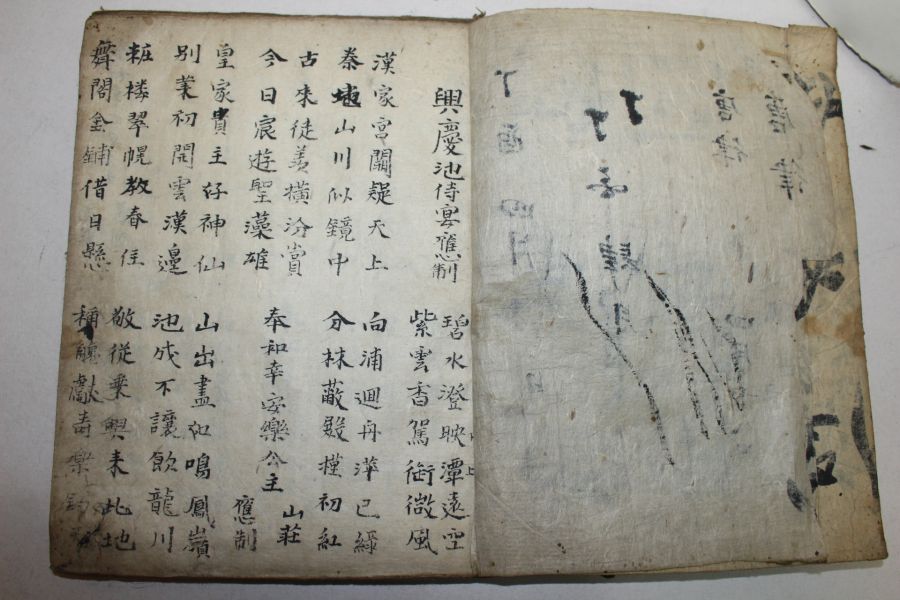 興慶池侍宴應制
碧水澄映潭遠空
紫雲香駕御微風
漢家宮闕疑天上
秦地山川似鏡中
向浦迴舟萍已綠
分林蔽殿槿初紅
古來徒羨橫汾賞
今日宸遊聖藻雄
奉和幸安樂公主
山莊
應制
皇家貴主好神仙
別業初開雲漢邊
山出盡如鳴鳳嶺
池成不讓飲龍川
粧樓翠幌教春住
舞閣金鋪借日懸
敬從乘輿來此地
稱觴獻壽樂鈞
唐律
唐律
丁酉四月